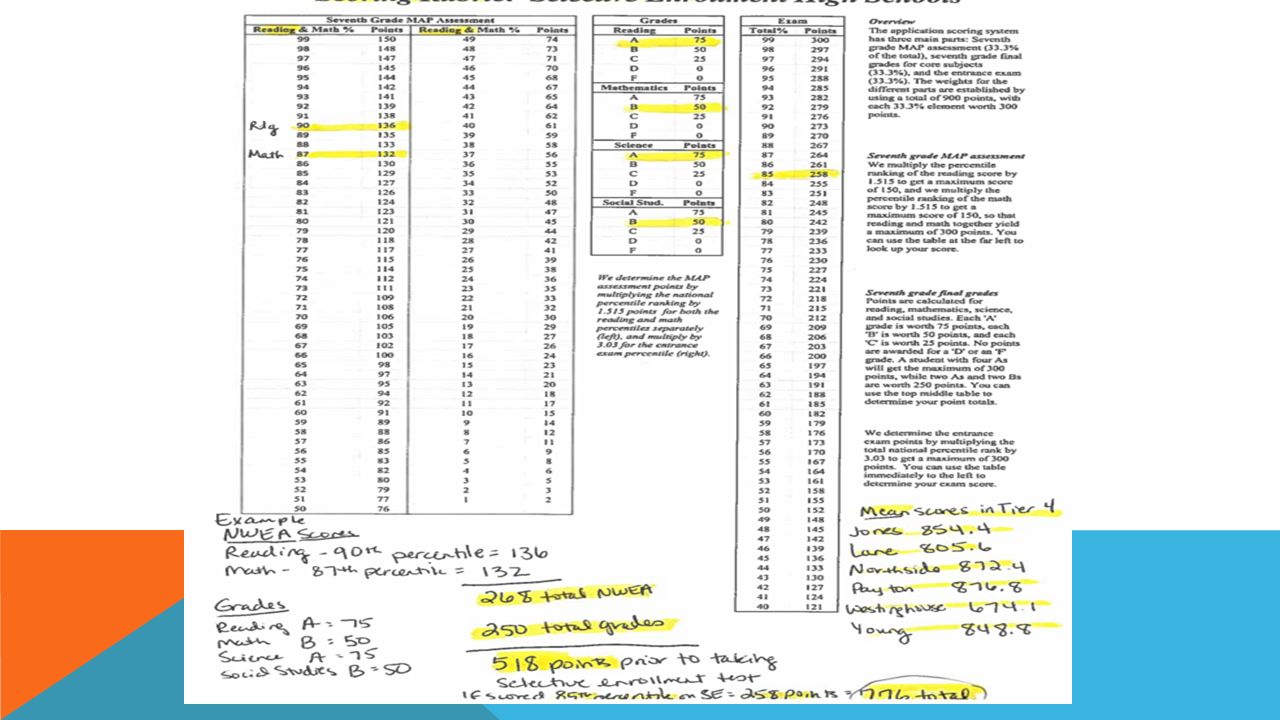 Scoring Rubric: Selective Enrollment High Schools
Seventh Grade MAP Assessment
Reading & Math % Points Reading & Math % Points
99 150 49 74
98 148 48 73
97 147 47 71
96 145 46 70
95 144 45 68
94 142 44 67
93 141 43 65
92 139 42 64
91 138 41 62
Rdg 90 136 40 61
89 135 39 59
88 133 38 58
Math 87 132 37 56
86 130 36 55
85 129 35 53
84 127 34 52
83 126 33 50
82 124 32 48
81 123 31 47
80 121 30 45
79 120 29 44
78 118 28 42
77 117 27 41
76 115 26 39
75 114 25 38
74 112 24 36
73 111 23 35
72 109 22 33
71 108 21 32
70 106 20 30
69 105 19 29
68 103 18 27
67 102 17 26
66 100 16 24
65 98 15 23
64 97 14 21
63 95 13 20
62 94 12 18
61 92 11 17
60 91 10 15
59 89 9 14
58 88 8 12
57 86 7 11
56 85 6 9
55 83 5 8
54 82 4 6
53 80 3 5
52 79 2 3
51 77 1 2
50 76
Grades
Reading Points
A 75
B 50
C 25
D 0
F 0
Mathematics Points
A 75
B 50
C 25
D 0
F 0
Science Points
A 75
B 50
C 25
D 0
F 0
Social Stud. Points
A 75
B 50
C 25
D 0
F 0
We determine the MAP
assessment points by
multiplying the national
percentile ranking by
1.515 points for both the
reading and math
percentiles separately
(left), and multiply by
3.03 for the entrance
exam percentile (right).
Exam
Total% Points
99 300
98 297
97 294
96 291
95 288
94 285
93 282
92 279
91 276
90 273
89 270
88 267
87 264
86 261
85 258
84 255
83 251
82 248
81 245
80 242
79 239
78 236
77 233
76 230
75 227
74 224
73 221
72 218
71 215
70 212
69 209
68 206
67 203
66 200
65 197
64 194
63 191
62 188
61 185
60 182
59 179
58 176
57 173
56 170
55 167
54 164
53 161
52 158
51 155
50 152
49 148
48 145
47 142
46 139
45 136
44 133
43 130
42 127
41 124
40 121
Overview
The application scoring system
has three main parts: Seventh
grade MAP assessment (33.3%
of the total), seventh grade final
grades for core subjects
(33.3%), and the entrance exam
(33.3%). The weights for the
different parts are established by
using a total of 900 points, with
each 33.3% element worth 300
points.
Seventh grade MAP assessment
We multiply the percentile
ranking of the reading score by
1.515 to get a maximum score
of 150, and we multiply the
percentile ranking of the math
score by 1.515 to get a
maximum score of 150, so that
reading and math together yield
a maximum of 300 points. You
can use the table at the far left to
look up your score.
Seventh grade final grades
Points are calculated for
reading, mathematics, science,
and social studies. Each 'A'
grade is worth 75 points, each
'B' is worth 50 points, and each
'C' is worth 25 points. No points
are awarded for a 'D' or an 'F'
grade. A student with four As
will get the maximum of 300
points, while two As and two Bs
are worth 250 points. You can
use the top middle table to
determine your point totals.
We determine the entrance
exam points by multiplying the
total national percentile rank by
3.03 to get a maximum of 300
points. You can use the table
immediately to the left to
determine your exam score.
Example
NWEA Scores
Reading - 90th percentile = 136
Math - 87th percentile = 132
268 total NWEA
Grades
Reading A = 75
Math B = 50
Science A = 75
Social Studies B = 50
250 total grades
518 points prior to taking
Selective enrollment test
If scored 85th percentile on SE = 258 points = 776 total
Mean scores in Tier 4
Jones 854.4
Lane 805.6
Northside 872.4
Payton 876.8
Westinghouse 674.1
Young 848.8